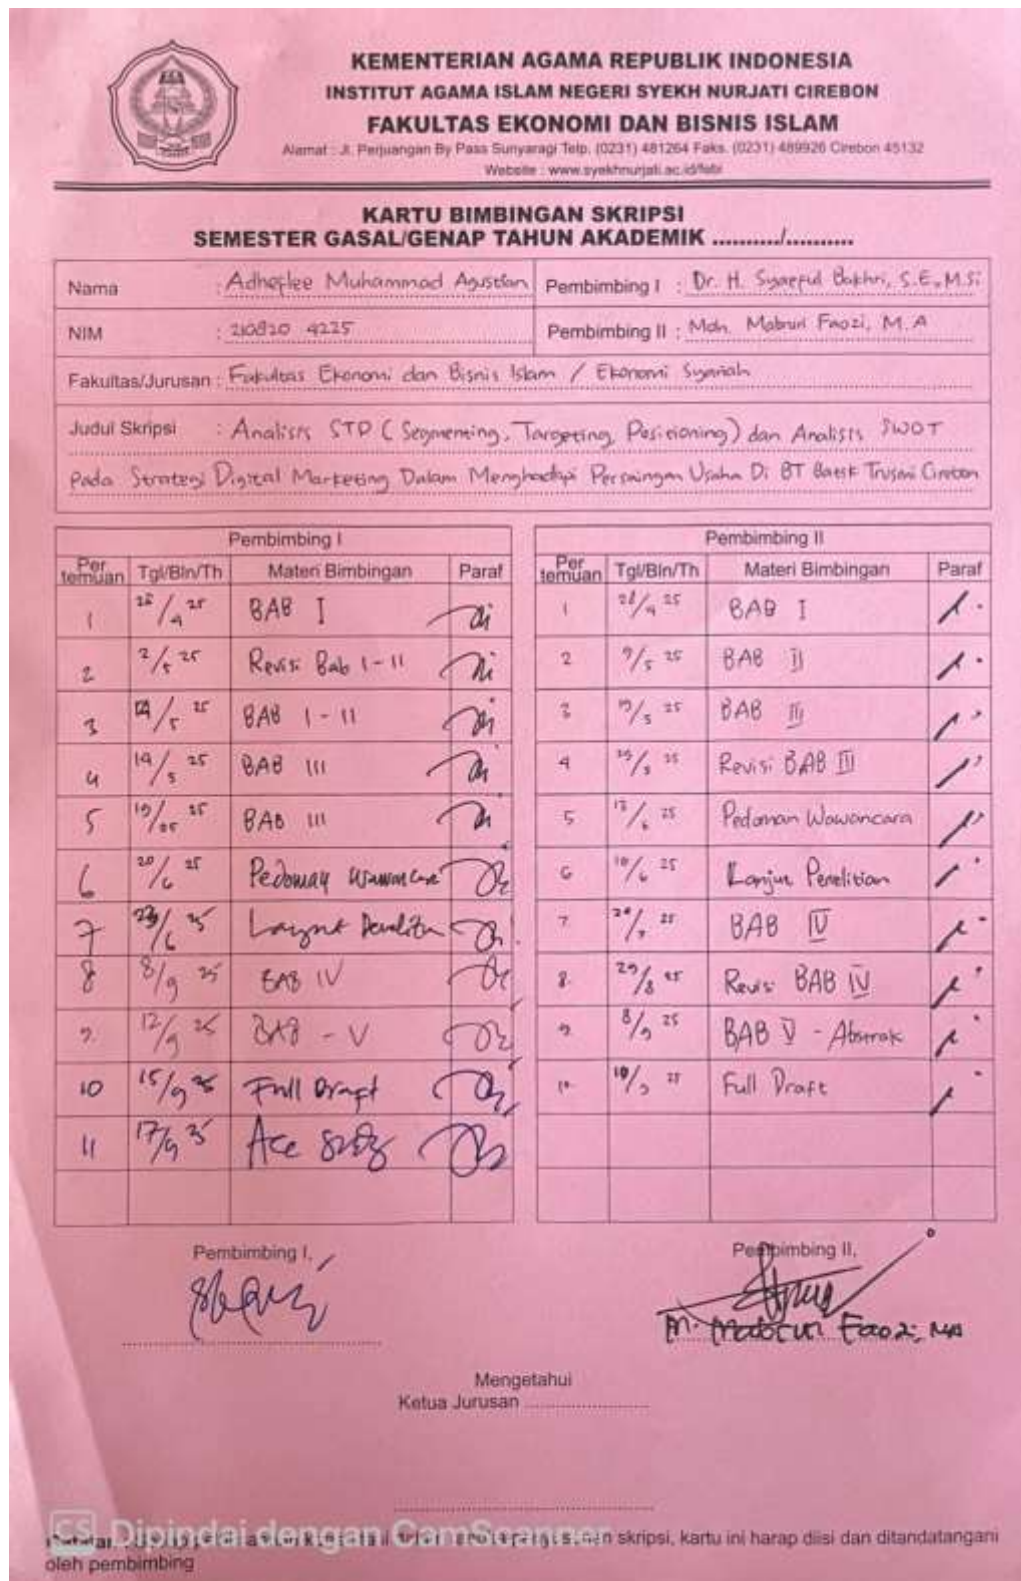 KEMENTERIAN AGAMA REPUBLIK INDONESIA
INSTITUT AGAMA ISLAM NEGERI SYEKH NURJATI CIREBON
FAKULTAS EKONOMI DAN BISNIS ISLAM
Alamat : Jl. Perjuangan By Pass Sunyaragi Telp. (0231) 481264 Faks. (0231) 489926 Cirebon 45132
Website : www.syekhnurjati.ac.id/febi
KARTU BIMBINGAN SKRIPSI
SEMESTER GASAL/GENAP TAHUN AKADEMIK ........../..........
Nama : Muhammad Agustian Pembimbing I : Dr. H. Syaeful Bakhri, S.E., M.Si
NIM : 210820 4225 Pembimbing II : Moh. Mabruri Faozi, M.A
Fakultas/Jurusan : Fakultas Ekonomi dan Bisnis Islam / Ekonomi Syariah
Judul Skripsi : Analisis STP (Segmenting, Targeting, Positioning) dan Analisis SWOT
Pada Strategi Digital Marketing Dalam Menghadapi Persaingan Usaha Di BT Batik Trusmi Cirebon
Pembimbing I
Per temuan Tgl/Bln/Th Materi Bimbingan Paraf
1 /4 25 BAB I
2 2/5 25 Revisi Bab I - II
3 /5 25 BAB I - II
4 14/5 25 BAB III
5 19/05 25 BAB III
6 20/6 25 Pedoman
7 23/6 25
8 8/9 25 BAB IV
9. 12/9 25 BAB - V
10 15/9 25 Full Draft
11 17/9 25 Acc
Pembimbing II
Per temuan Tgl/Bln/Th Materi Bimbingan Paraf
1 28/4 25 BAB I
2 9/5 25 BAB II
3 /5 25 BAB III
4 /5 25 Revisi BAB III
5 /6 25 Pedoman Wawancara
6 /6 25 Lanjut Penelitian
7 25 BAB IV
8. 29/8 25 Revisi BAB IV
9 8/9 25 BAB V - Abstrak
10. 10/9 25 Full Draft
Pembimbing I,
Pembimbing II,
M. Mabruri Faozi, MA
Mengetahui
Ketua Jurusan
CS Dipindai dengan CamScanner
skripsi, kartu ini harap diisi dan ditandatangani
oleh pembimbing